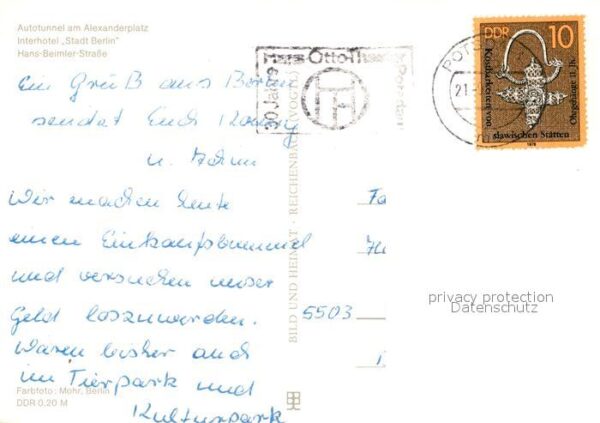 Autotunnel am Alexanderplatz
Interhotel „Stadt Berlin"
Hans-Beimler-Straße
Ein Gruß aus Berlin
sendet Euch
u.
Wir machen heute
einen Einkaufsbummel
und versuchen unser
Geld loszuwerden.
Waren bisher auch
im Tierpark und
Kulturpark
Farbfoto: Mohr, Berlin
DDR 0.20 M
BILD UND HEIMAT · REICHENBACH (VOGTL)
30 Jahre
Hans-Otto-Theater
Potsdam
HOT
POTS
21.
DDR 10
Kostbarkeiten von
slawischen Stätten
Ohrgehänge 11. Jh.
1978
Fa
5503
privacy protection
Datenschutz